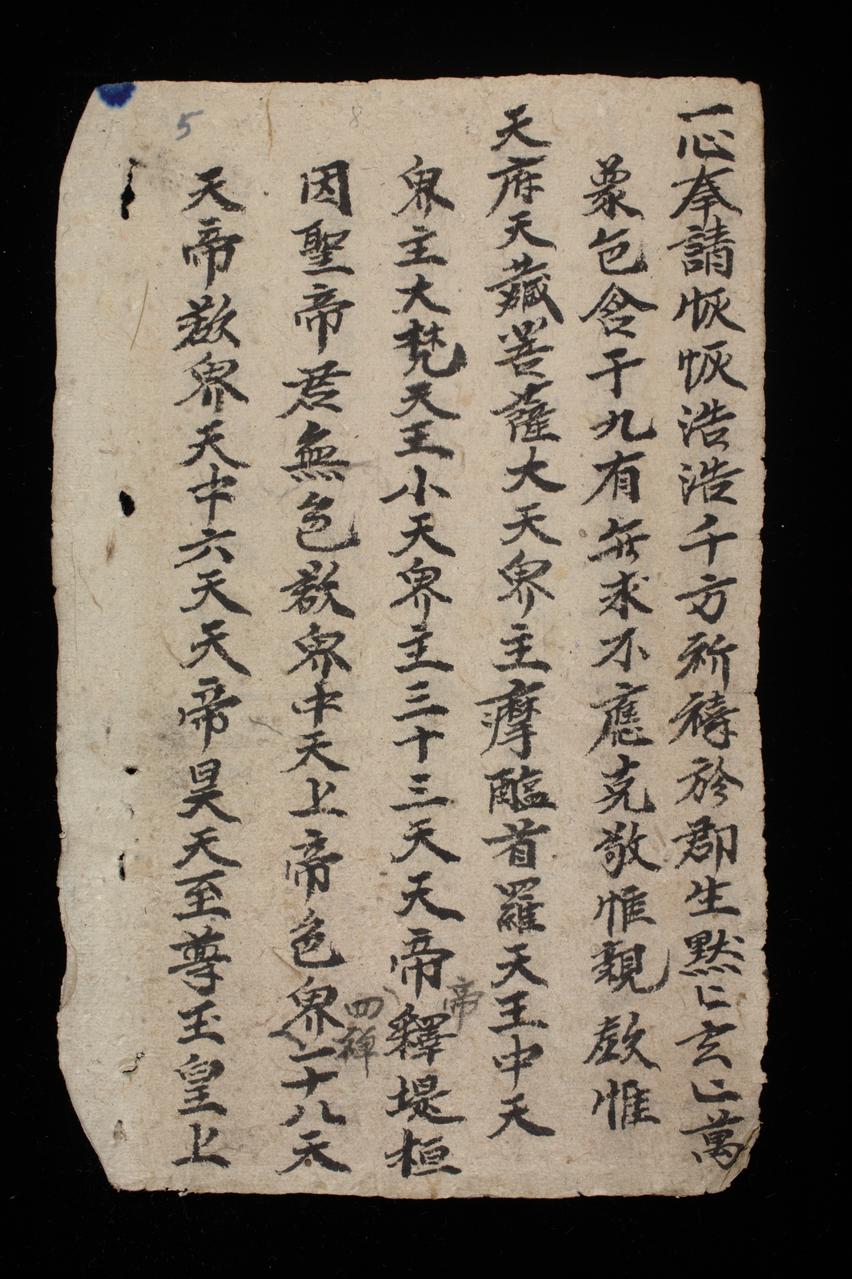 一心奉請恢恢浩浩千方祈禱於郡生黙〻玄〻萬
彙包含于九有無求不應克敬惟親歆惟
天府天藏菩薩大天界主摩醯首羅天王中天
界主大梵天王小天界主三十三天天帝釋堤桓
帝
因聖帝君無色欲界中天上帝色界一十八天
四禅
天帝欲界天中六天天帝昊天至尊玉皇上
5
8